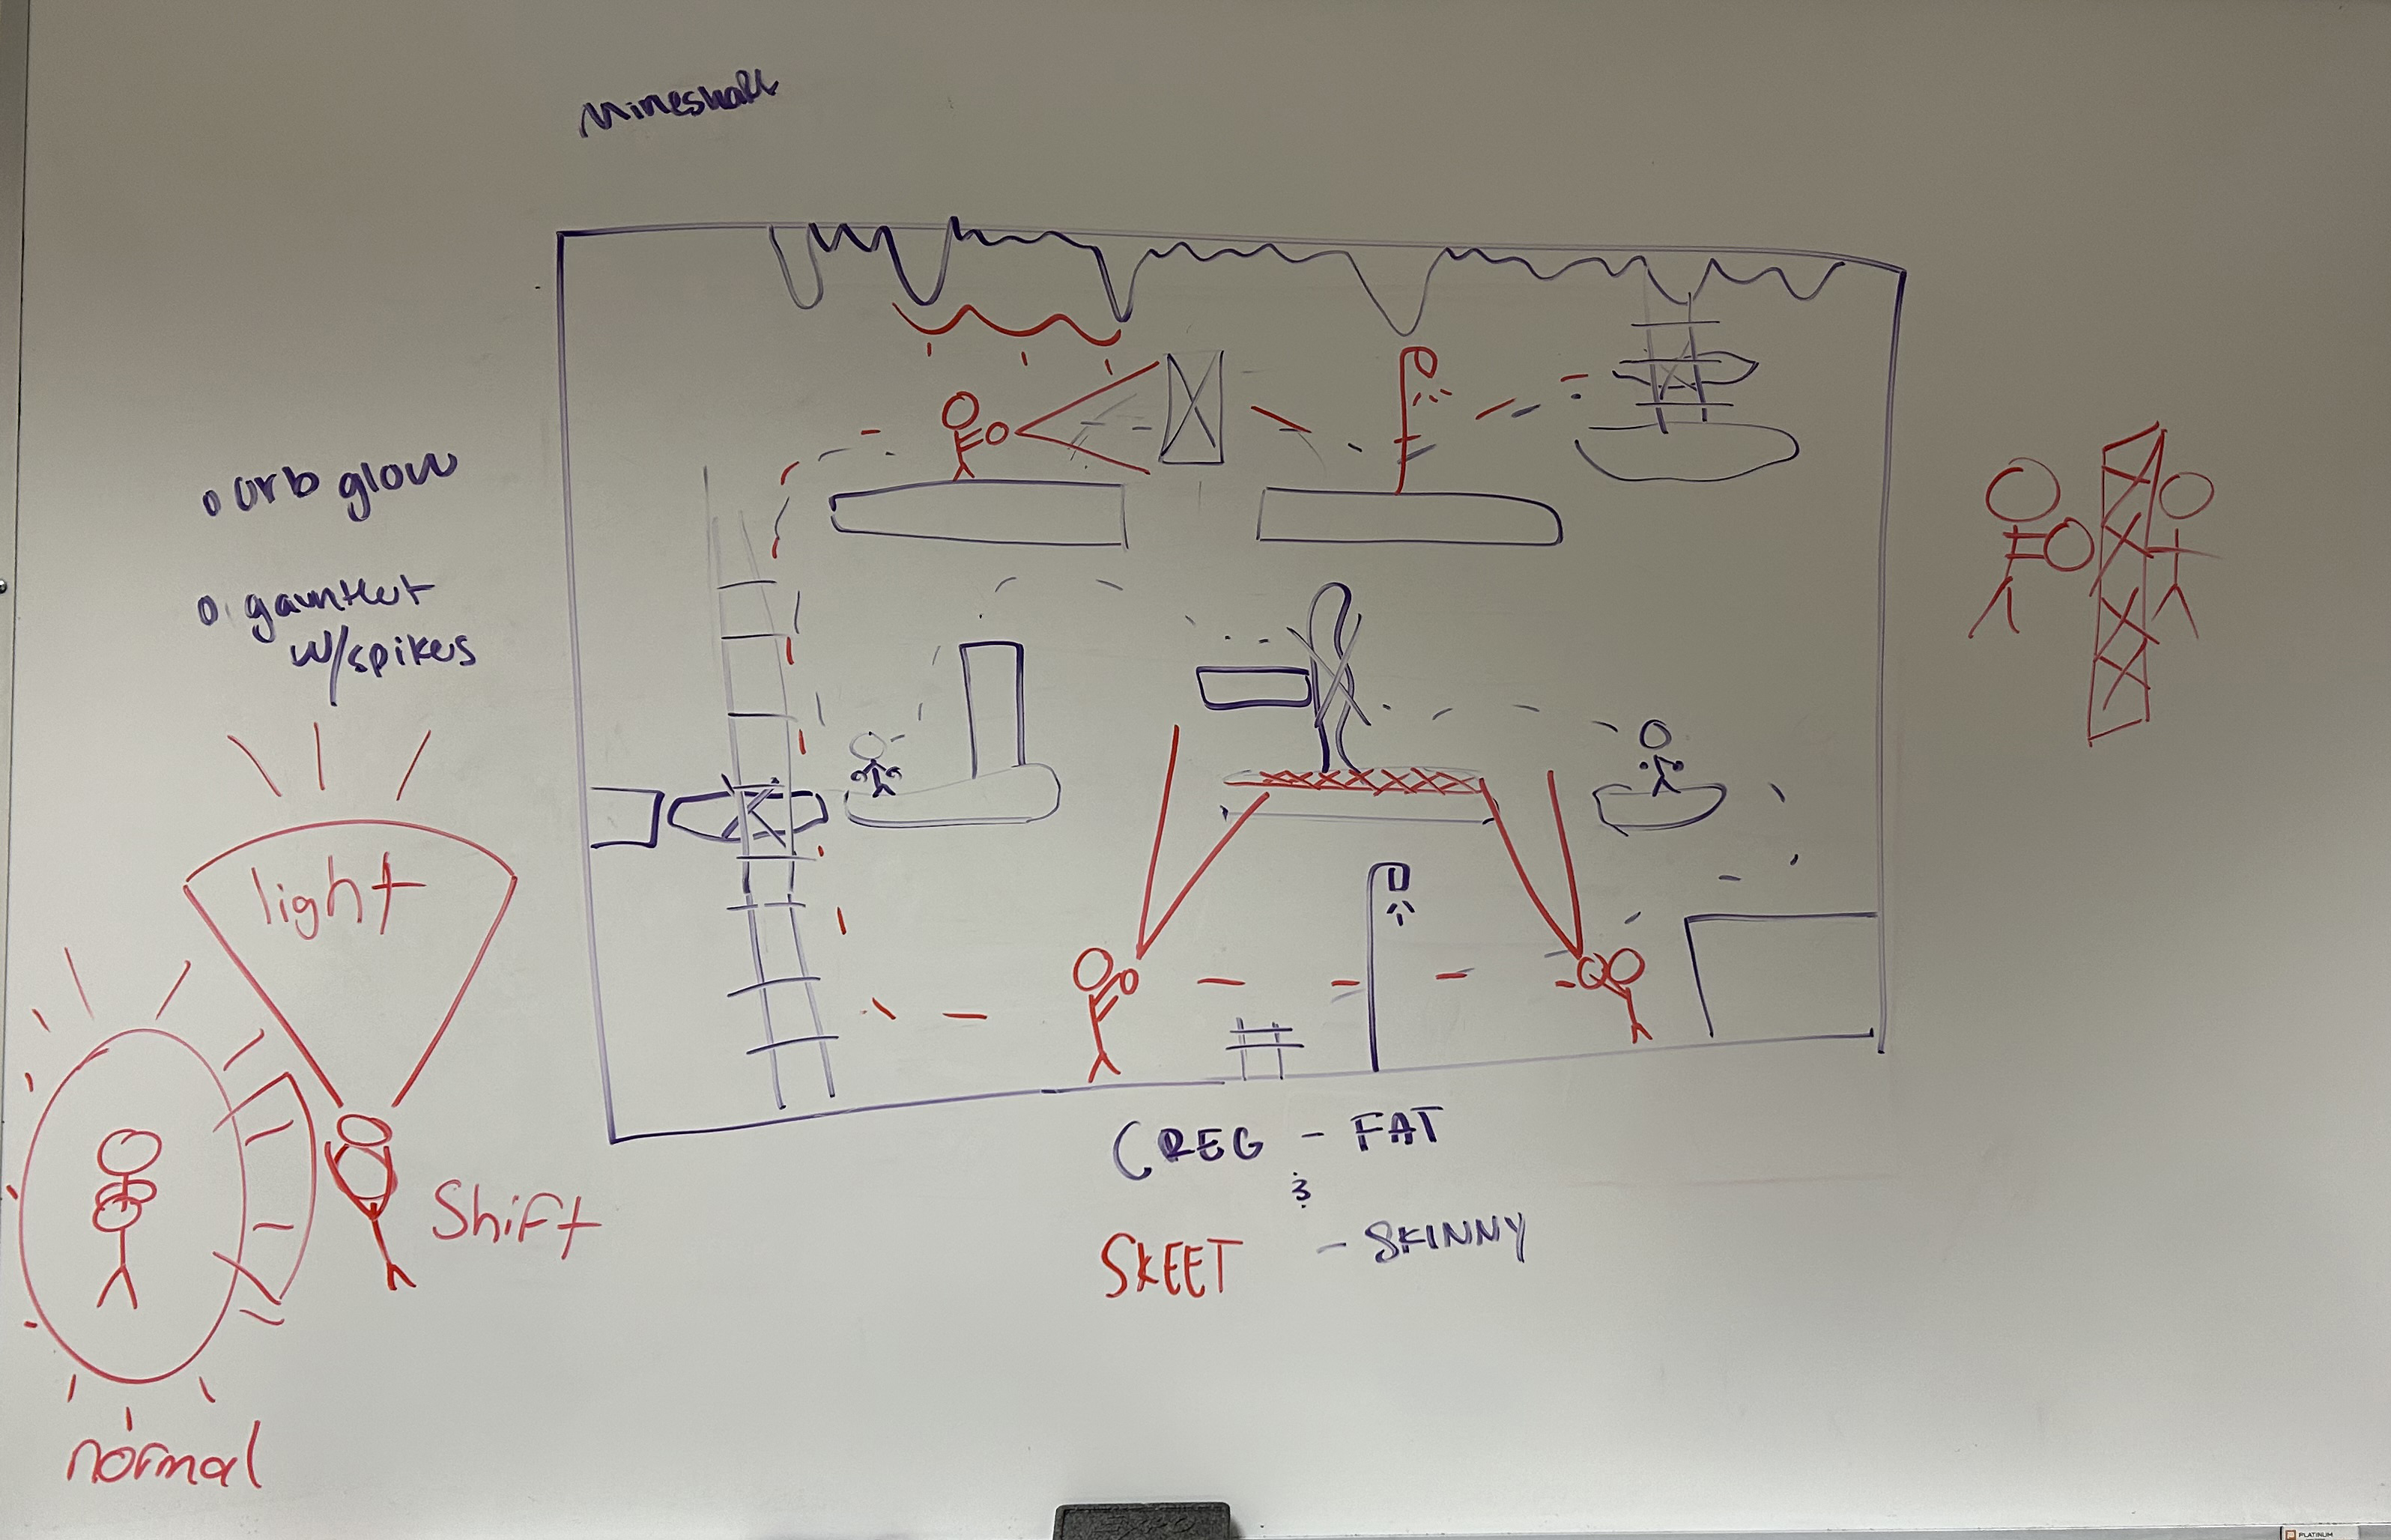 Mineshaft
o urb glow
o gauntlet
w/spikes
light
Shift
normal
CREG - FAT
&
SKEET - SKINNY
EXPO
PLATINUM